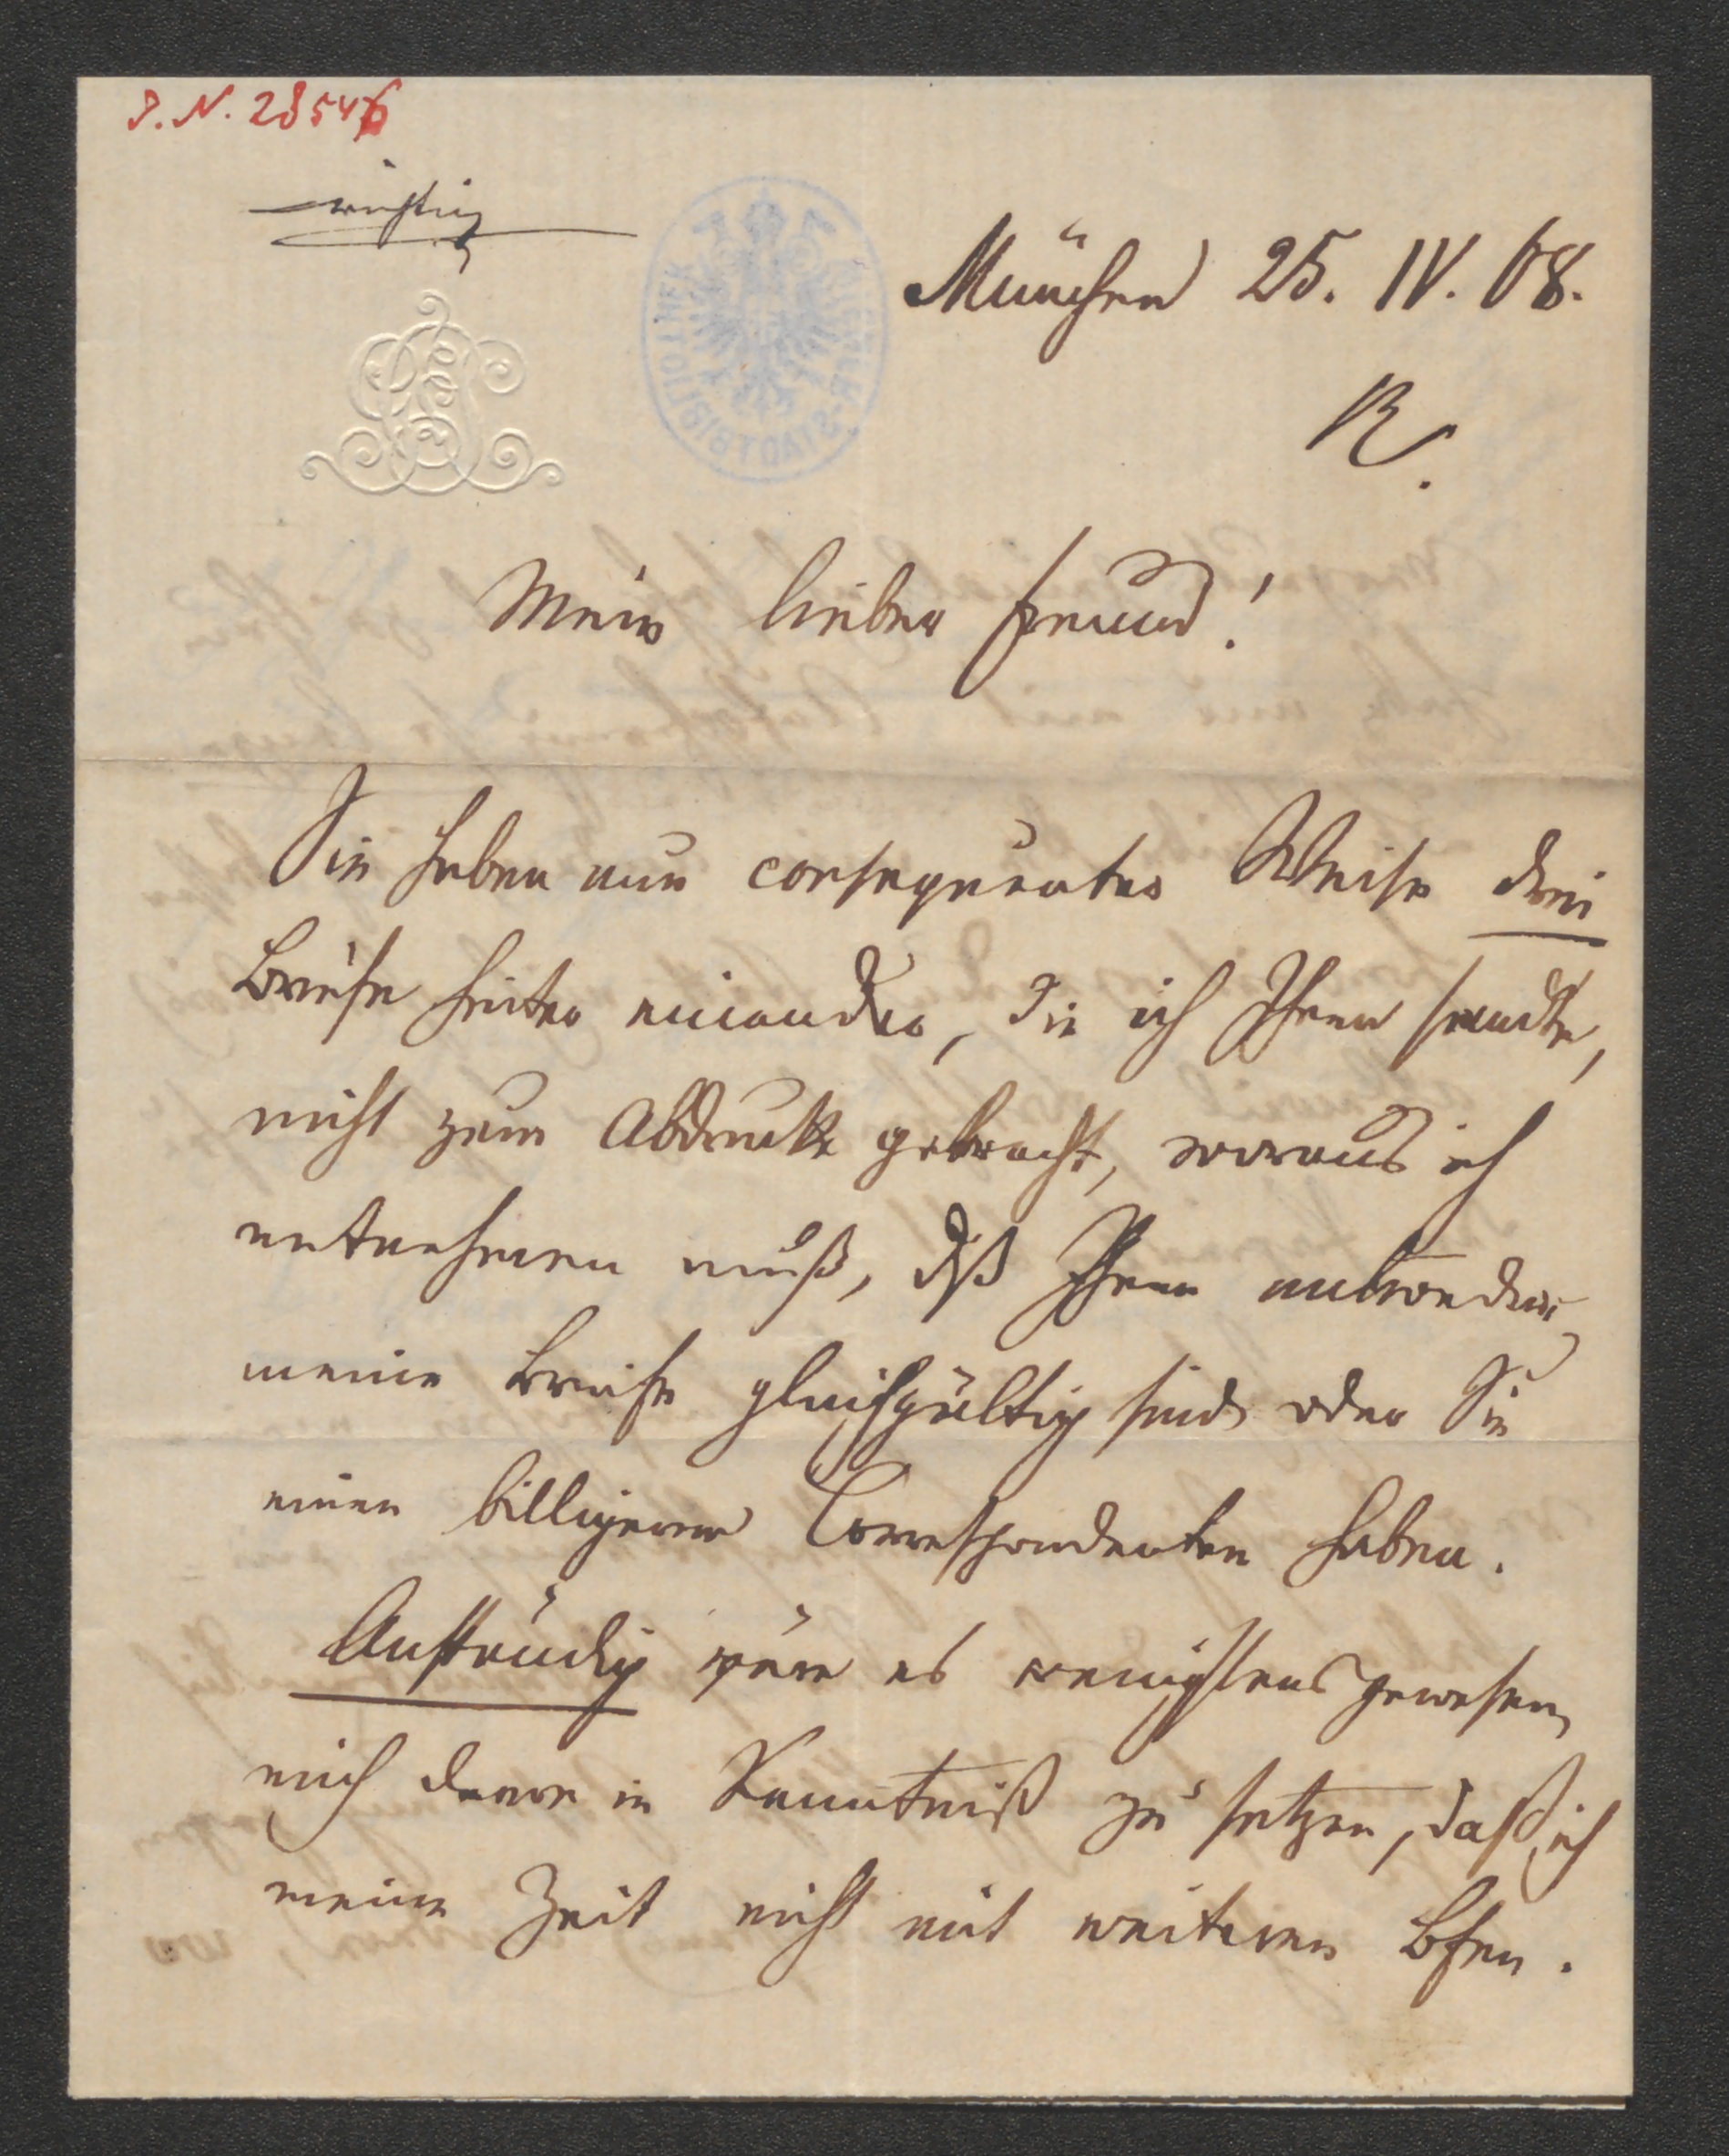 I. N. 28546
wichtig
WIENER STADTBIBLIOTHEK
München 25. IV. 68.
R.
Mein lieber Freund!
Sie haben nun consequenter Weise drei
Briefe hinter einander, die ich Ihnen sandte,
nicht zum Abdrucke gebracht, woraus ich
entnehmen muß, dß Ihnen entweder
meine Briefe gleichgültig sind oder Sie
einen billigeren Correspondenten haben.
Anständig wäre es wenigstens gewesen,
mich davon in Kenntniß zu setzen, daß ich
meine Zeit nicht mit weiteren Bfen.